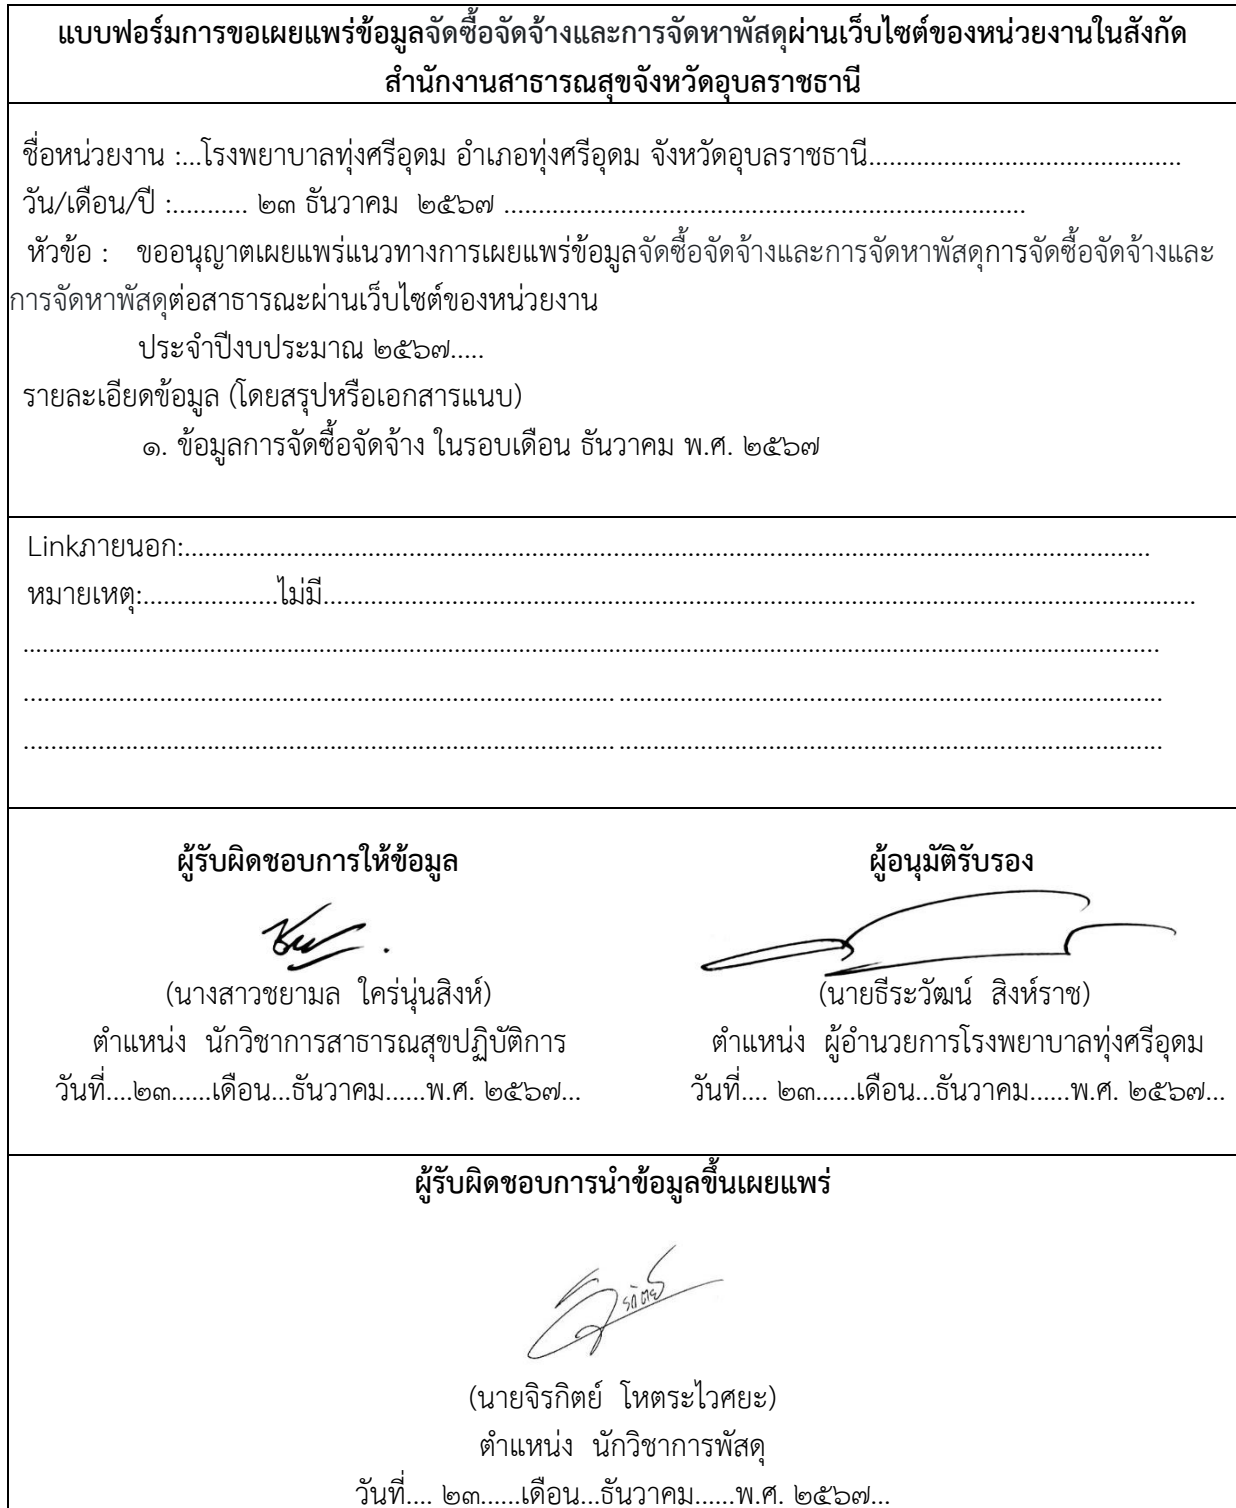 แบบฟอร์มการขอเผยแพร่ข้อมูลจัดซื้อจัดจ้างและการจัดหาพัสดุผ่านเว็บไซต์ของหน่วยงานในสังกัด
สำนักงานสาธารณสุขจังหวัดอุบลราชธานี
ชื่อหน่วยงาน :...โรงพยาบาลทุ่งศรีอุดม อำเภอทุ่งศรีอุดม จังหวัดอุบลราชธานี..............................................
วัน/เดือน/ปี :........... ๒๓ ธันวาคม ๒๕๖๗ ............................................................................
หัวข้อ : ขออนุญาตเผยแพร่แนวทางการเผยแพร่ข้อมูลจัดซื้อจัดจ้างและการจัดหาพัสดุการจัดซื้อจัดจ้างและ
การจัดหาพัสดุต่อสาธารณะผ่านเว็บไซต์ของหน่วยงาน
ประจำปีงบประมาณ ๒๕๖๗.....
รายละเอียดข้อมูล (โดยสรุปหรือเอกสารแนบ)
๑. ข้อมูลการจัดซื้อจัดจ้าง ในรอบเดือน ธันวาคม พ.ศ. ๒๕๖๗
Linkภายนอก:..............................................................................................................................................
หมายเหตุ:....................ไม่มี................................................................................................................................
ผู้รับผิดชอบการให้ข้อมูล ผู้อนุมัติรับรอง
(นางสาวชยามล ใคร่นุ่นสิงห์) (นายธีระวัฒน์ สิงห์ราช)
ตำแหน่ง นักวิชาการสาธารณสุขปฏิบัติการ ตำแหน่ง ผู้อำนวยการโรงพยาบาลทุ่งศรีอุดม
วันที่....๒๓......เดือน...ธันวาคม......พ.ศ. ๒๕๖๗... วันที่.... ๒๓......เดือน...ธันวาคม......พ.ศ. ๒๕๖๗...
ผู้รับผิดชอบการนำข้อมูลขึ้นเผยแพร่
(นายจิรกิตย์ โหตระไวศยะ)
ตำแหน่ง นักวิชาการพัสดุ
วันที่.... ๒๓......เดือน...ธันวาคม......พ.ศ. ๒๕๖๗...